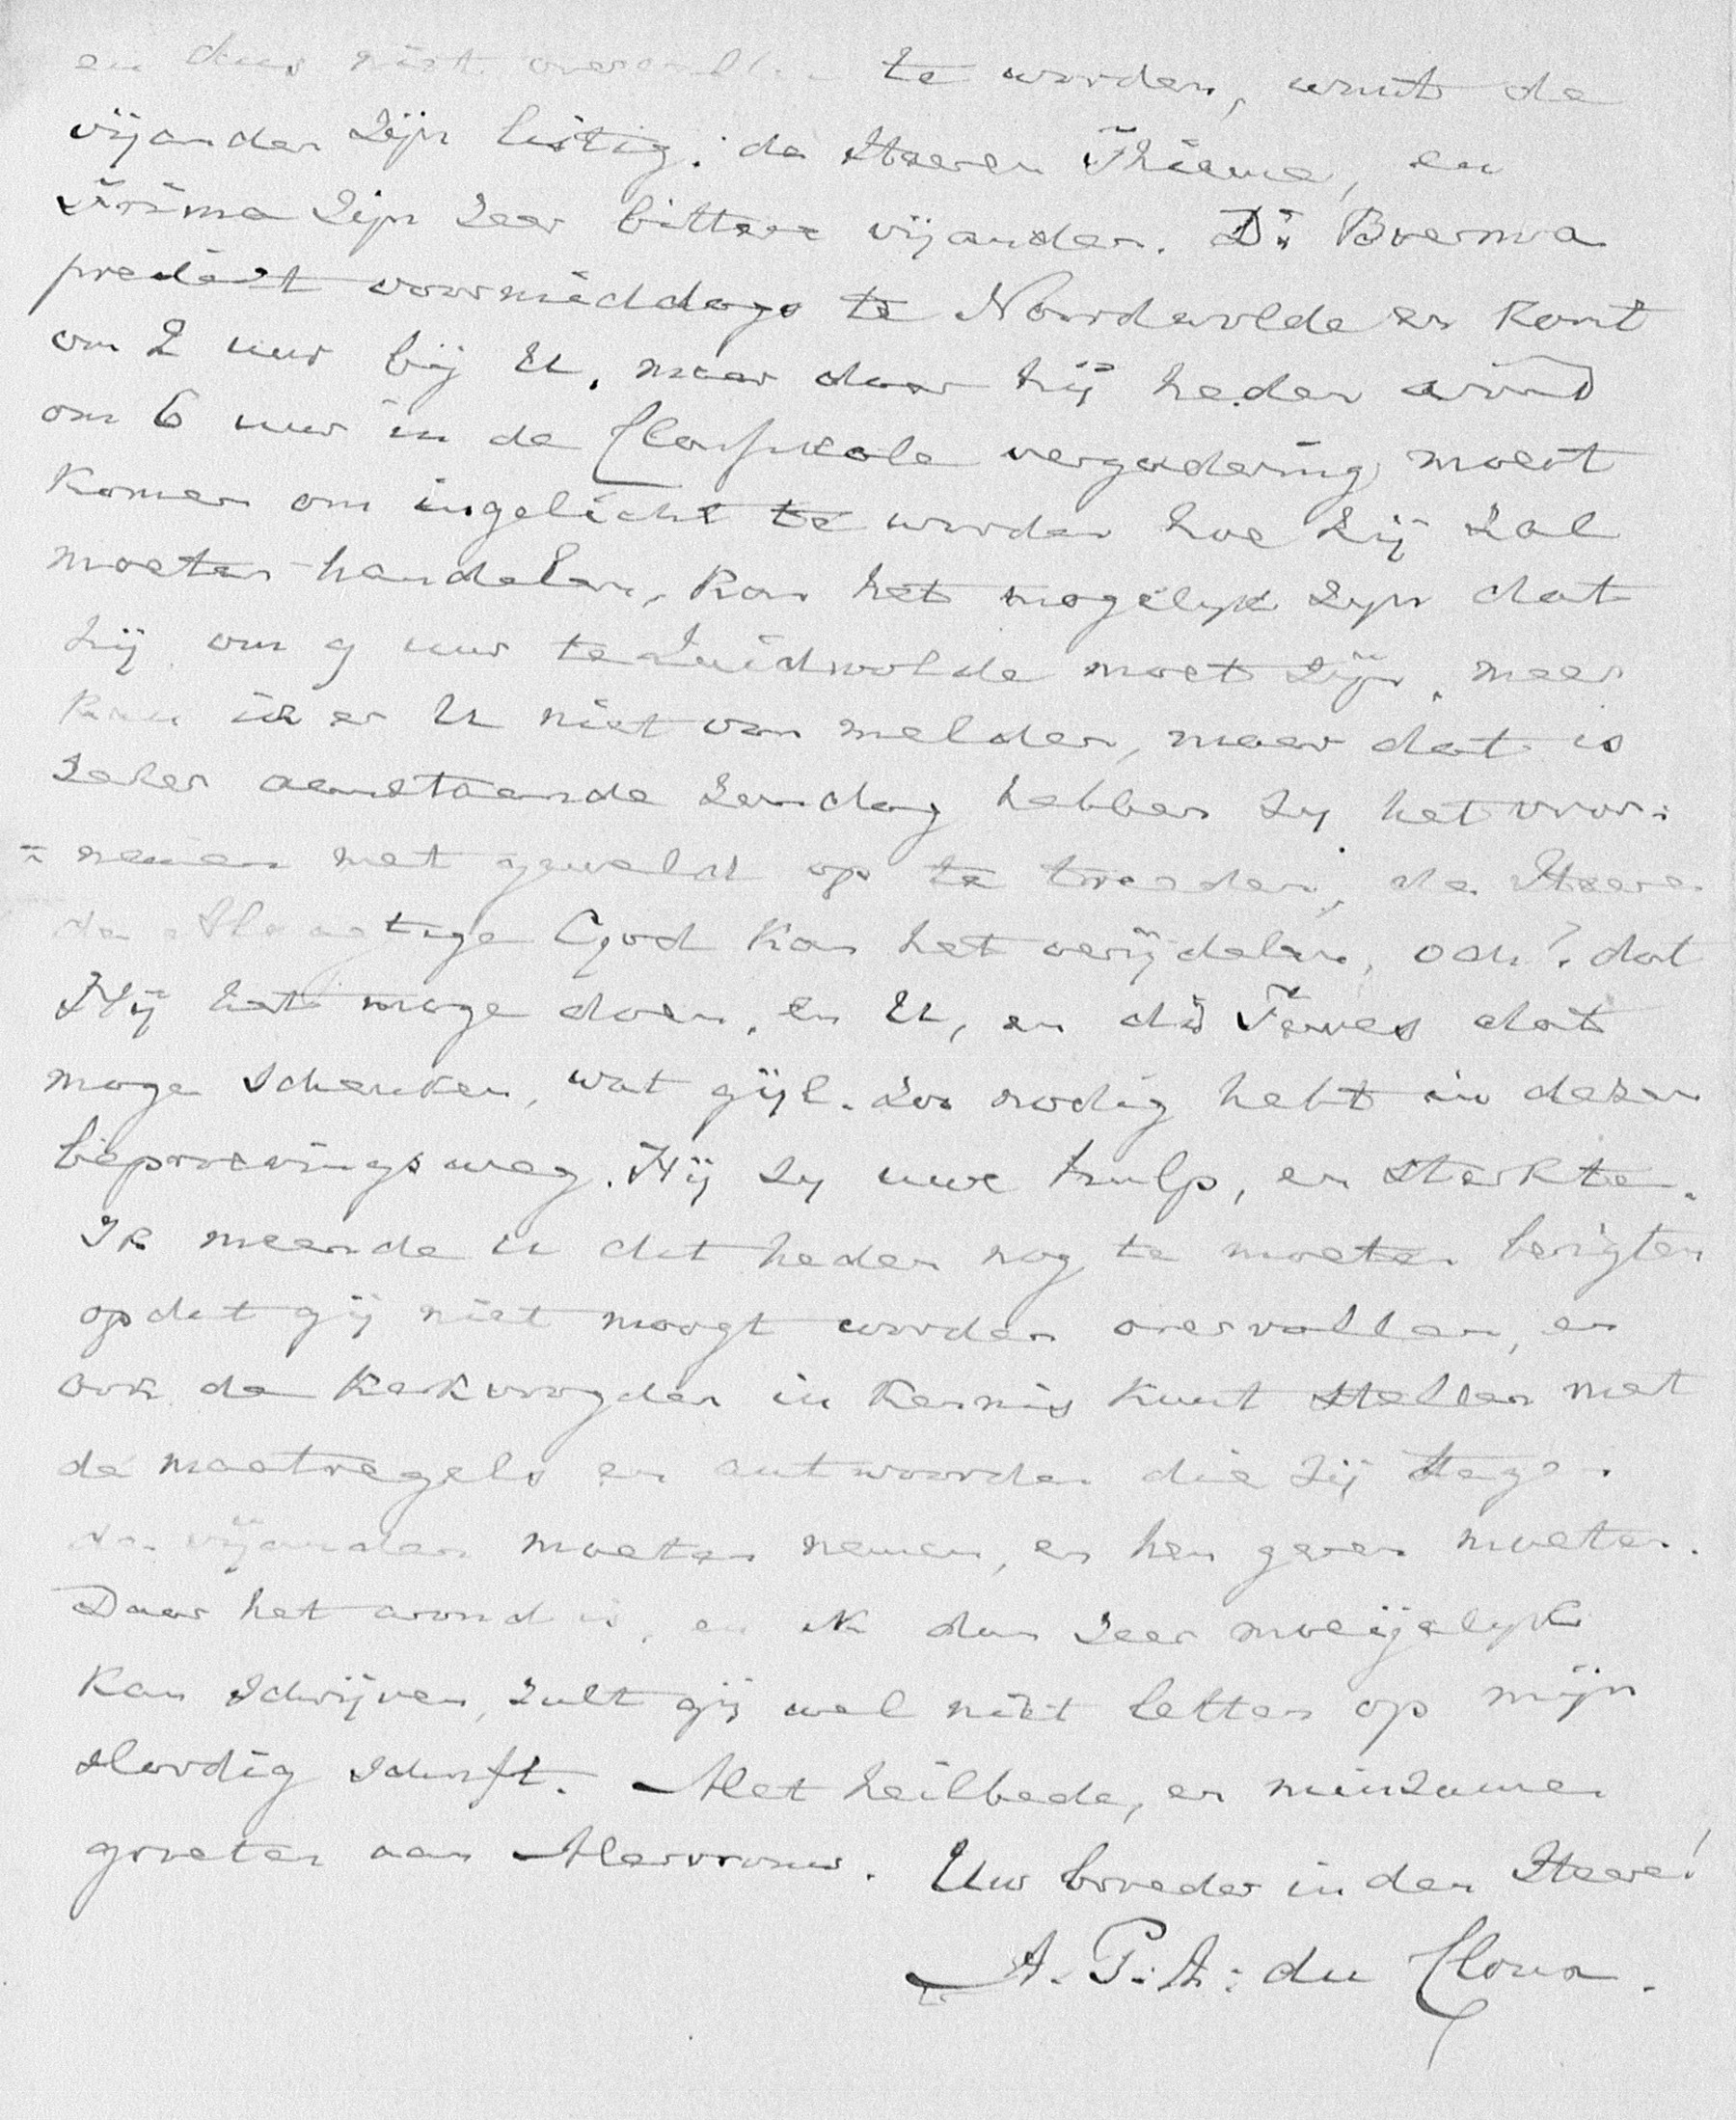 en dus niet te worden, want de
vijanden zijn listig. de Heeren Thieme, en
zijn zeer bittere vijanden. Ds Boersma
predikt voormiddags te Noordwolde en komt
om 2 uur bij U, maar daar hij heden avond
om 6 uur in de Classicale vergadering moest
komen om ingelicht te worden hoe hij zal
moeten handelen, kan het mogelijk zyn dat
hij om 9 uur te Zuidwolde moet zijn, meer
kan ik er U niet van melden, maar dat is
zeker aanstaande zondag hebben zy het voor=
=nemen met geweld op te treeden, de Heere
de Almagtige God kan het verijdelen, och! dat
Hij het moge doen, en U, en ds dat
moge schenken, wat gijl. zoo nodig hebt in dezen
beproevingsweg. Hij zy uwe hulp, en sterkte.
Ik meende U dit heden nog te moeten berigten
opdat gij niet moogt worden overvallen, en
ook de kerkvoogden in kennis kunt stellen met
de maatregels en antwoorden die zij tegen
de vijanden moeten nemen, en hen geven moeten.
Daar het avond is, en ik dan zeer moeijelyk
kan schrijven, zult gij wel niet letten op mijn
slordig schrift. Met heilbede, en minzame
groeten aan Mevrouw. Uw broeder in den Heere!
A. P. A: du Cloux.